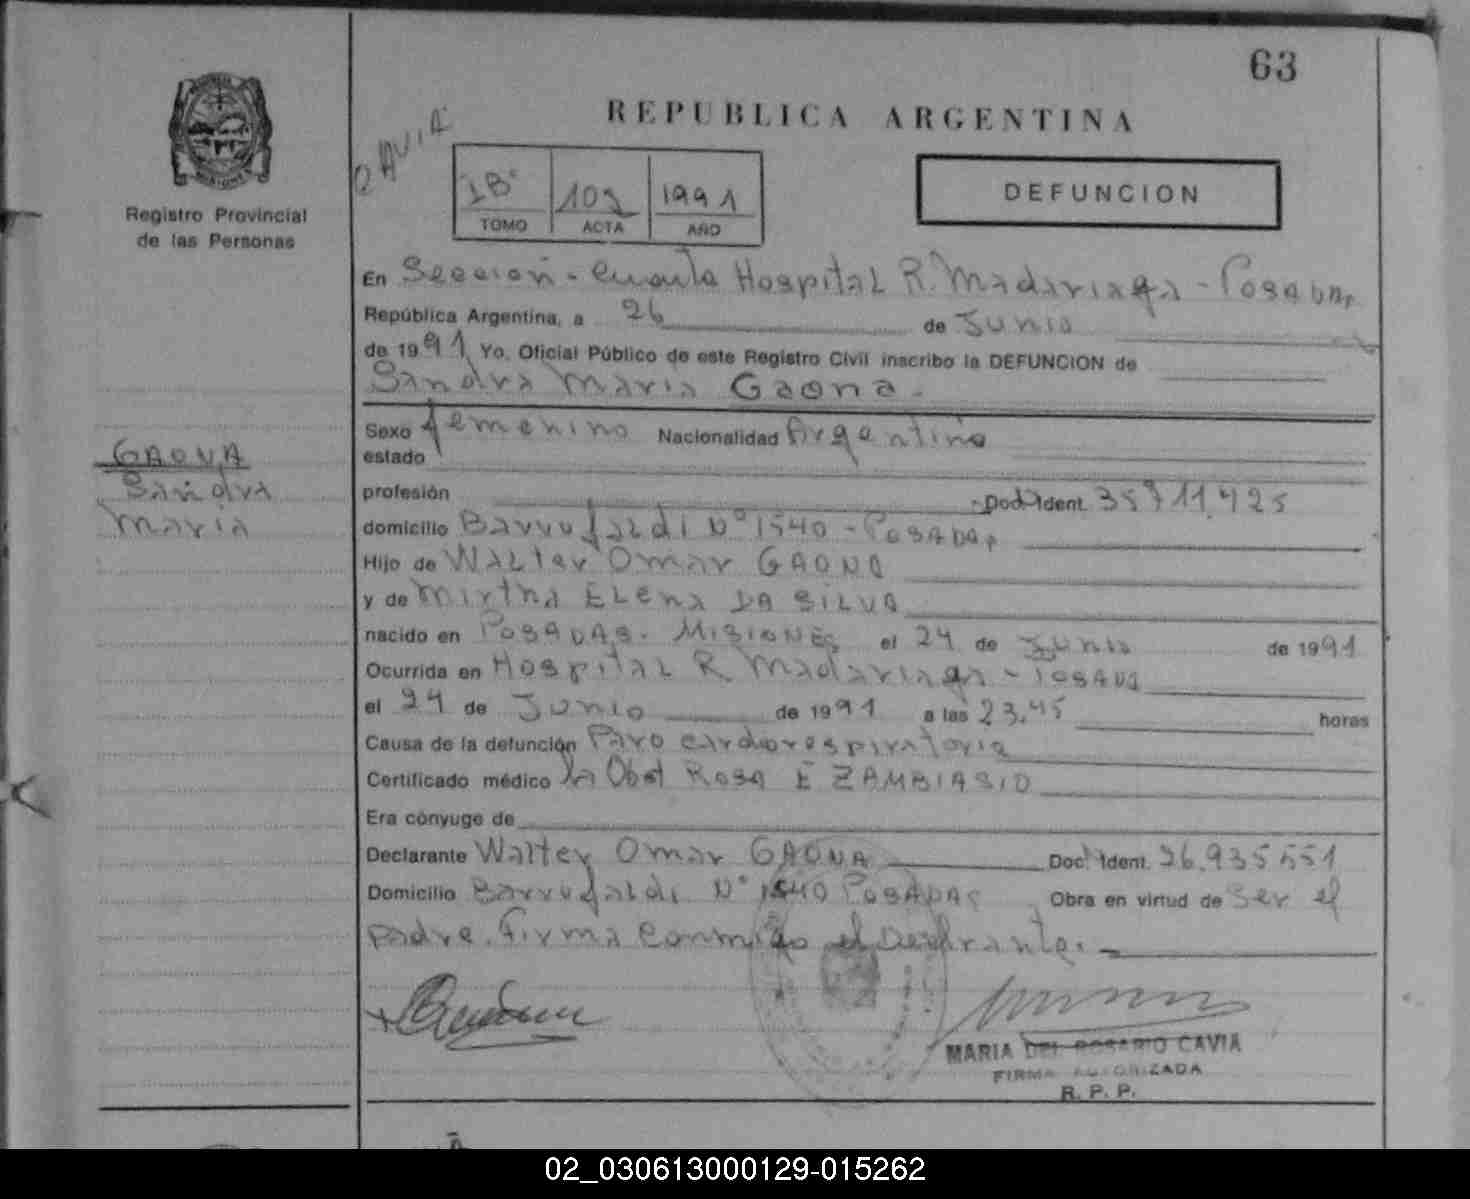 63
REPUBLICA ARGENTINA
CAVIA
1B° 102 1991
TOMO ACTA AÑO
DEFUNCION
Registro Provincial
de las Personas
En Sección - Cuarta Hospital R. Madariaga - Posadas
República Argentina, a 26 de Junio
de 1991 Yo, Oficial Público de este Registro Civil inscribo la DEFUNCION de
Sandra Maria Gaona.
GAONA
Sandra
Maria
Sexo femenino Nacionalidad Argentina
estado
profesión Doc. Ident. 35711.425
domicilio Barrufaldi N° 1540 - Posadas
Hijo de Walter Omar GAONA
y de Mirtha ELENA DA SILVA
nacido en POSADAS. MISIONES el 24 de Junio de 1991
Ocurrida en Hospital R Madariaga - Posadas
el 24 de Junio de 1991 a las 23,45 horas
Causa de la defunción Paro cardiorespiratoria
Certificado médico la Obst ROSA E ZAMBIASIO
Era cónyuge de
Declarante Walter Omar GAONA Doc. Ident. 26.935551
Domicilio Barrufaldi N° 1540 POSADAS Obra en virtud de Ser el
padre. Firma conmigo el Declarante. -
MARIA DEL ROSARIO CAVIA
FIRMA AUTORIZADA
R. P. P.
02_030613000129-015262